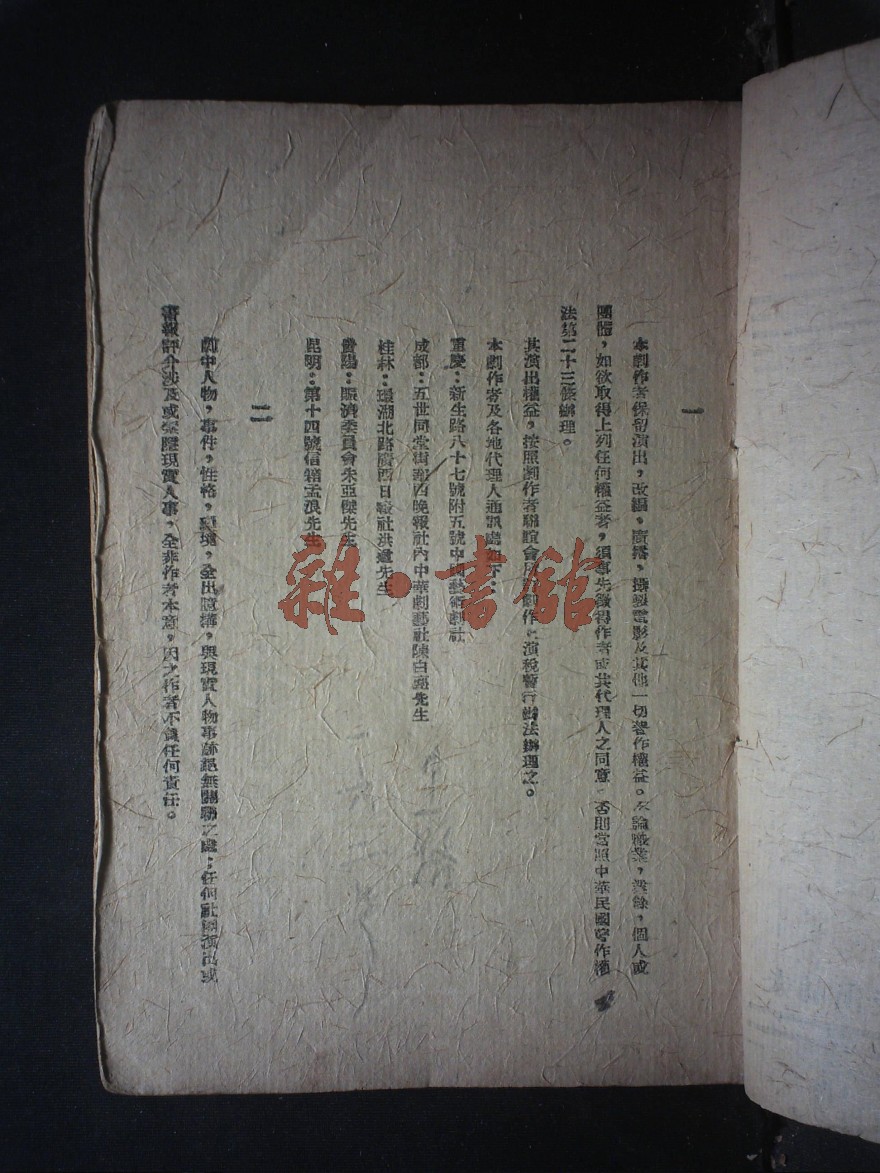 一
本劇作者保留演出,改編,廣播,攝製電影及其他一切著作權益。不論職業,業餘,個人或
團體,如欲取得上列任何權益者,須事先徵得作者或其代理人之同意,否則當照中華民國著作權
法第二十三條辦理。
其演出權益,按照劇作者聯誼會所訂劇作上演稅暫行辦法辦理之。
本劇作者及各地代理人通訊處如下:
重慶:新生路八十七號附五號中國藝術劇社
成都:五世同堂街華西晚報社內中華劇藝社陳白塵先生
桂林:環湖北路廣西日報社洪遒先生
貴陽:賑濟委員會朱亞傑先生
昆明:第十四號信箱孟浪先生
二
劇中人物,事件,性格,環境,全出臆構,與現實人物事跡絕無關聯之處;任何社團演出或
書報評介涉及或索隱現實人事,全非作者本意,因之作者不負任何責任。
雜·書館